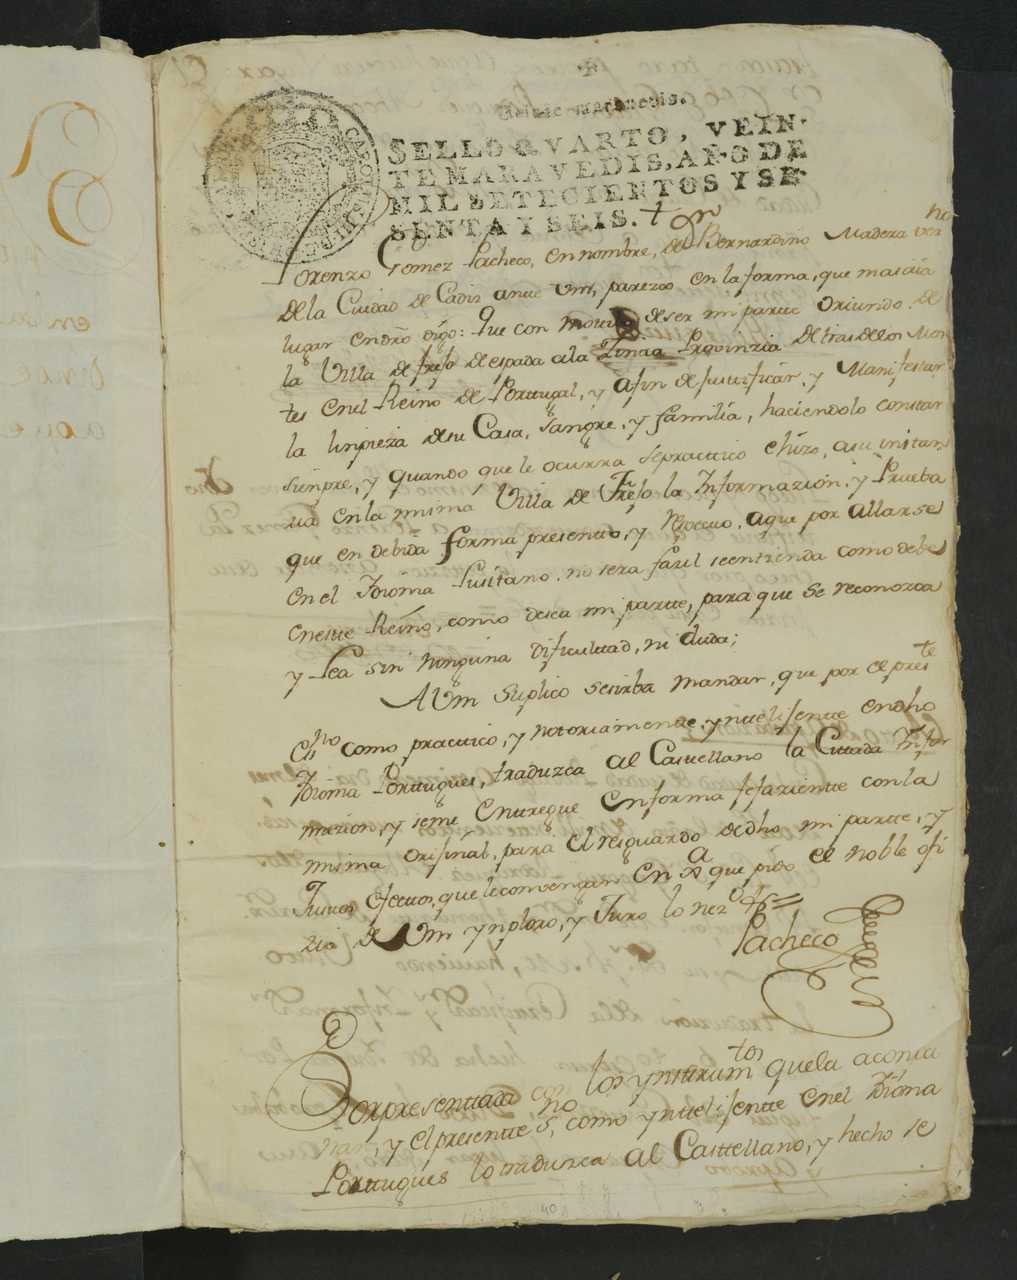 Veinte maravedis.
SELLO QVARTO, VEIN-
TE MARAVEDIS, AÑO DE
MIL SETECIENTOS Y SE-
SENTA Y SEIS.
Lorenzo Gomez Pacheco, en nombre, de Dn Bernardino Madera vezno
de la Ciudad de Cadis antte Vm, parezco en la forma, que mas aia
lugar en dro digo: Que con motivo de ser mi partte oriundo de
la Villa de frejo de espada a la Zinta Provinzia de tras de los Mon
tes en el Reino de Porttugal, y afin de Justificar, y Manifestar
la limpieza de su Casa, Sangre, y familia, haciendolo constar
siempre, y quando que le ocurra se practtico e hizo, a su instan
zia en la misma Villa de Frejo la Informazion, y Prueba
que en debida forma presentto, y Respectto, aque por allarse
en el Idioma Lusitano, no sera fasil se entienda como debe
en estte Reino, como desea mi partte, para que se reconozca
y sea sin ninguna dificulttad, ni duda;
A Vm Suplico se sirba mandar, que por el preste
Esno como practtico, y nottoriamente ynttelijentte en dho
Idioma Porttugues, traduzca al Casttellano la Cittada Infor
mazion, y seme enttregue en forma fefazientte con la
misma orijinal, para el resguardo de dho mi partte, y
Justtos efecttos, que le convengan en Ja que pido el noble ofi
zio de Vm ynploro, y Juro lo nezo &a=
Pacheco
Por presenttada con los ynsttrumtos que la acompa
ñan, y el presentte Esno, como yntelijentte en el Idioma
Porttugues lo traduzca al Casttellano, y hecho se